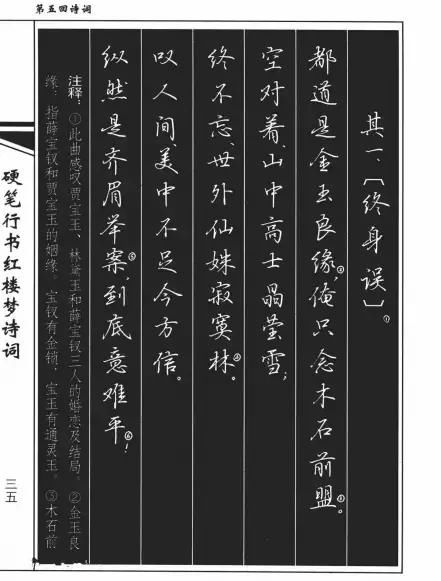 第五回诗词
其一、〔终身误〕①
都道是金玉良缘②，俺只念木石前盟③。
空对着，山中高士晶莹雪；
终不忘，世外仙姝寂寞林④。
叹人间，美中不足今方信。
纵然是齐眉举案⑤，到底意难平⑥！
注释：①此曲感叹贾宝玉、林黛玉和薛宝钗三人的婚恋及结局。②金玉良
缘：指薛宝钗和贾宝玉的姻缘。宝钗有金锁，宝玉有通灵玉。③木石前
硬笔行书红楼梦诗词
三五